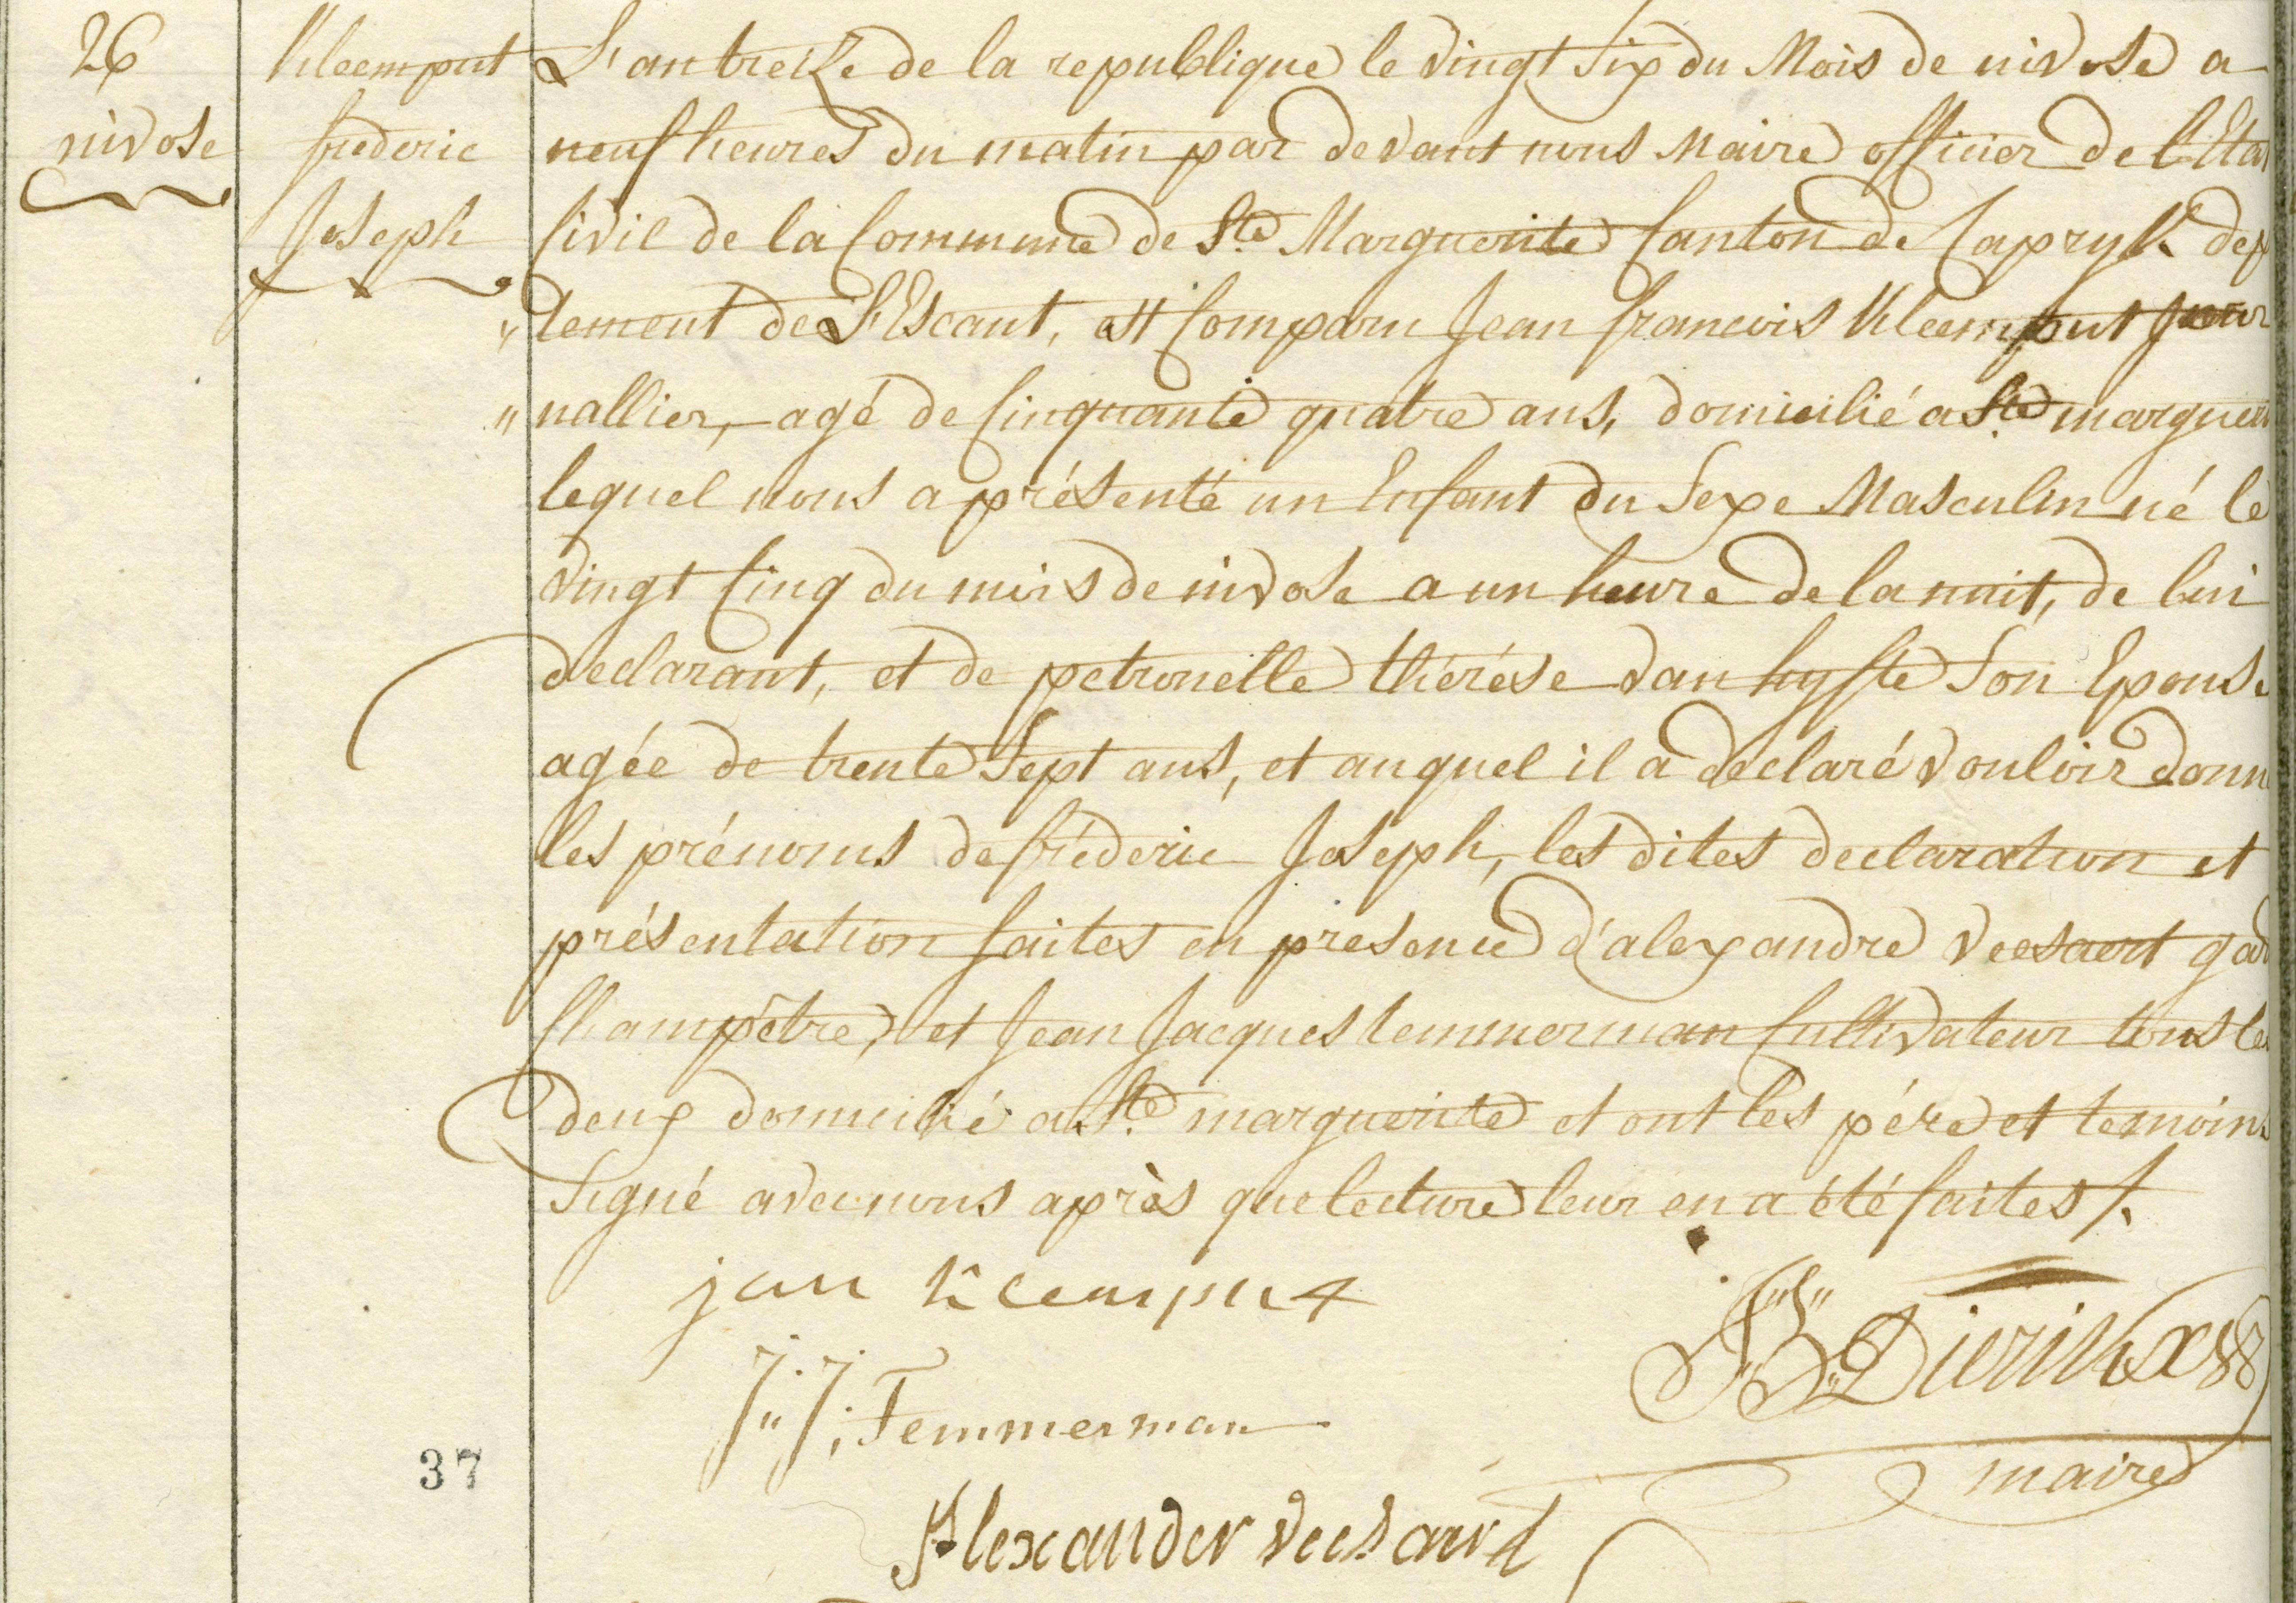 26
nivose
Kleemput
frederic
Joseph
L'an treize de la republique le vingt six du Mois de nivose a
neuf heures du matin par devant nous Maire officier de l'Eta
Civil de la Commune de Ste Marguerite Canton de Capryk dep
" tement de L'Escaut, est Comparu Jean francois Kleemput jour
" nallier, agé de Cinquante quatre ans, domicilié a Ste marguer
lequel nous a présenté un Enfant du Sexe Masculin né le
vingt Cinq du mois de nivose a un heure de la nuit, de lui
declarant, et de petronelle thérése van hyfte Son Epouse
agée de trente Sept ans, et auquel il a declaré vouloir donne
les prénoms de fréderic Joseph, les dites declaration et
présentation faites en presence d'alexandre veesaert gar
Champêtre, et Jean Jacques temmerman Cultivateur tous les
deux domicilié a Ste marguerite et ont les pére et temoins
Signé avec nous après que lecture leur en a été faites /.
jan Kleemput
J" J; Temmerman
Dierikx
maire
Alexander veesaert
37